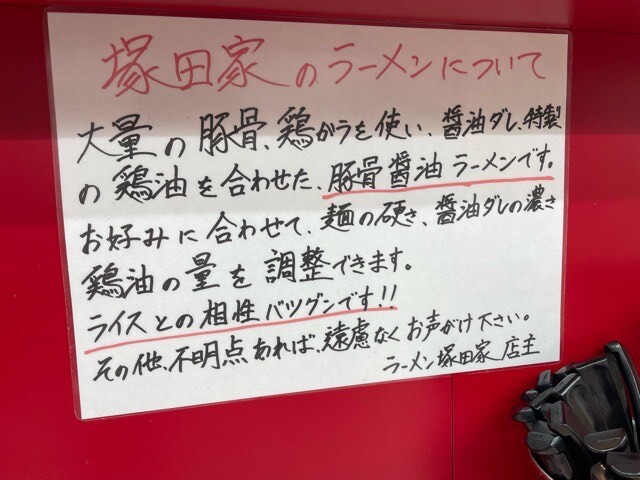 塚田家のラーメンについて
大量の豚骨、鶏がらを使い、醤油ダレ、特製
の鶏油を合わせた、豚骨醤油ラーメンです。
お好みに合わせて、麺の硬さ、醤油ダレの濃さ
鶏油の量を調整できます。
ライスとの相性バツグンです!!
その他、不明点あれば、遠慮なくお声がけ下さい。
ラーメン塚田家 店主